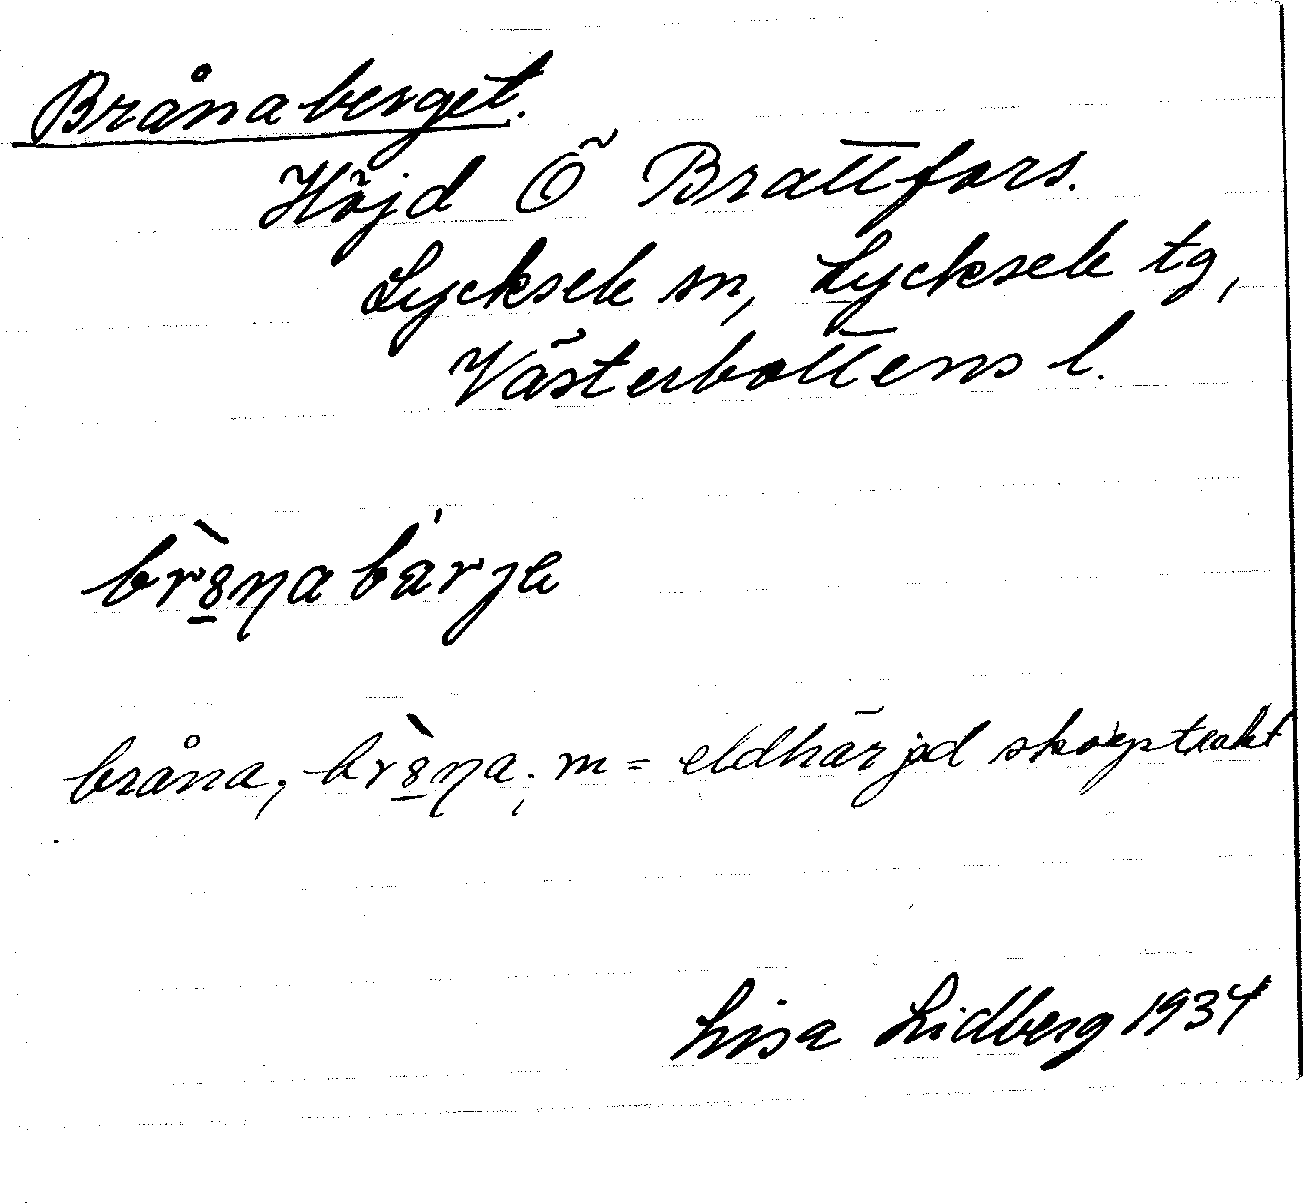 Brånaberget.
Höjd Ö Brattfors.
Lycksele sn, Lycksele tg,
Västerbottens l.
br8̲̀ŋa bär'je
bråna, br8̲̀ŋa, m = eldhärjad skogstrakt
Lisa Lidberg 1934